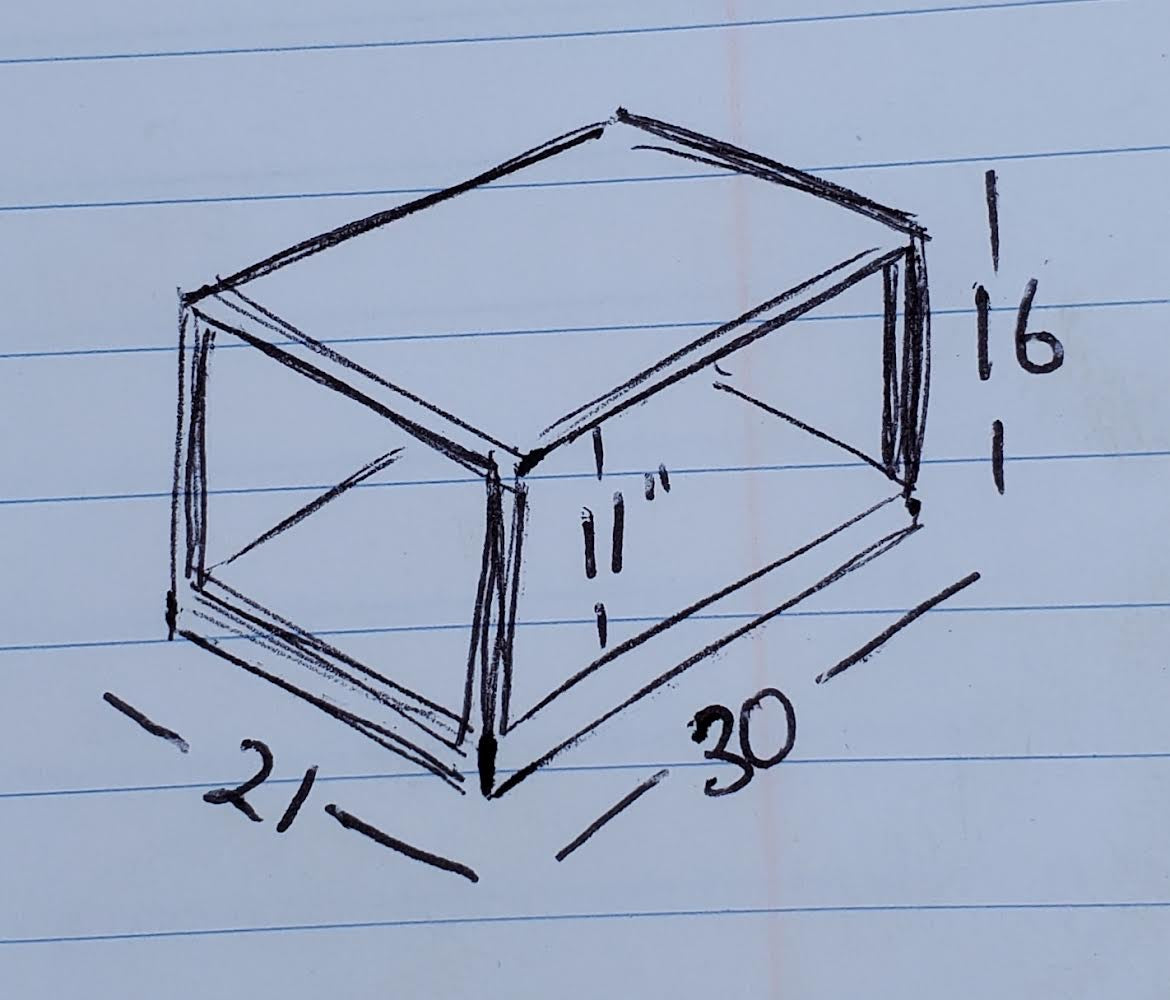 16
11"
30
21